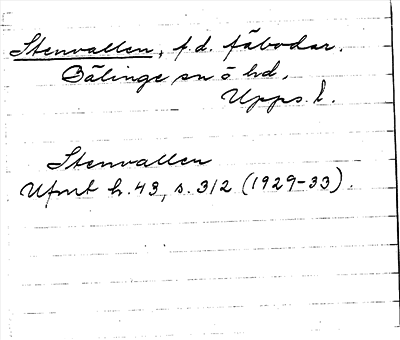 Stenvallen, f.d. fäbodar.
Bälinge sn o hd.
Upps. l.
Stenvallen
Ufmt h. 43, s. 312 (1929-33).